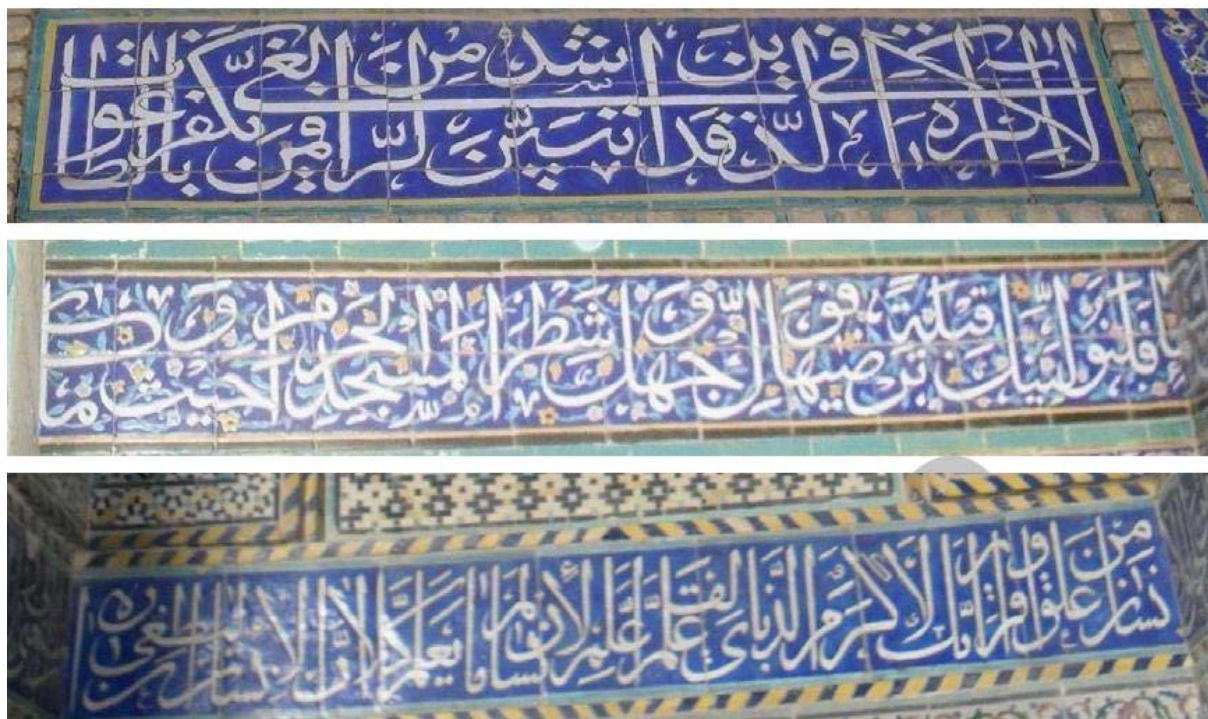 لا اكراه في الدين قد تبين الرشد من الغي فمن يكفر بالطاغوت
فلنولينك قبلة ترضيها فول وجهك شطر المسجد الحرام وحيث ما
نسان من علق اقرا وربك الاكرم الذي علم بالقلم علم الانسان ما لم يعلم كلا ان الانسان ليطغى ان راه